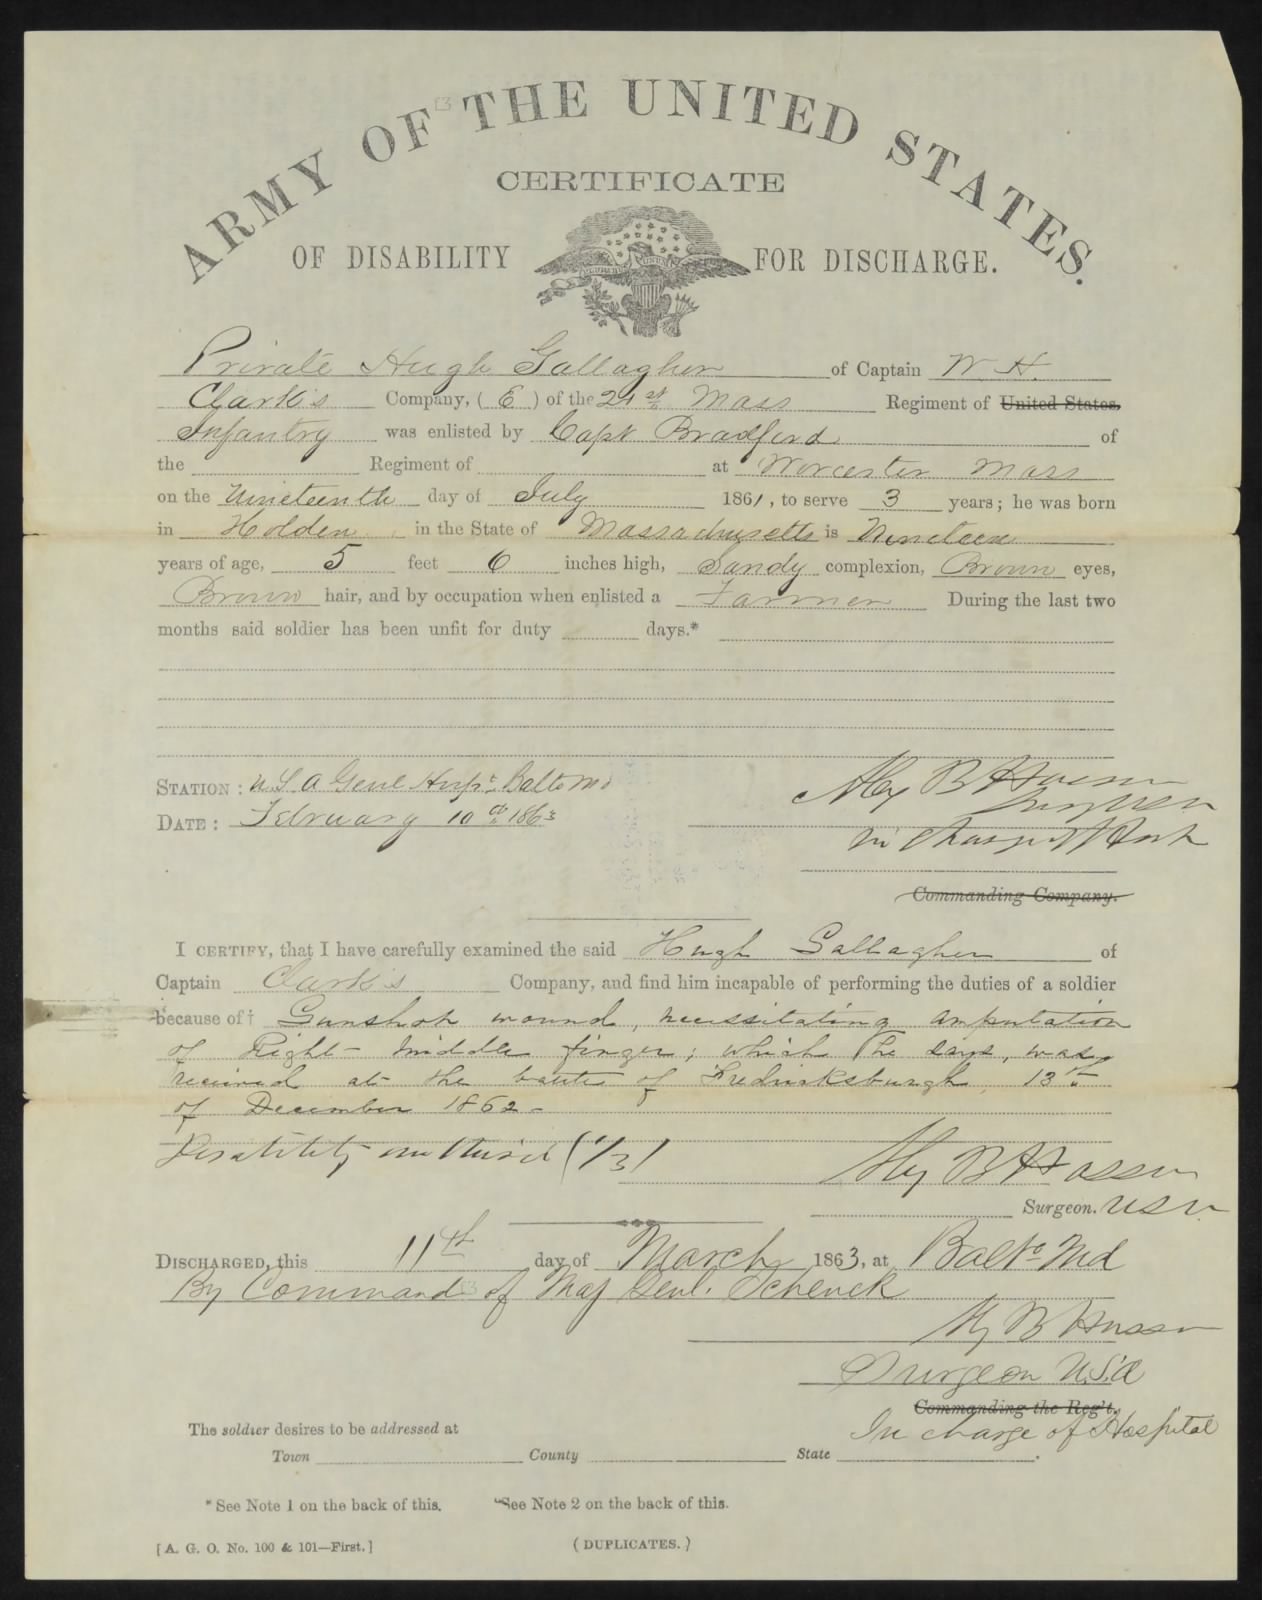 ARMY OF THE UNITED STATES.
CERTIFICATE
OF DISABILITY FOR DISCHARGE.
Private Hugh Gallagher of Captain W. H.
Clark's Company, ( E ) of the 21st Mass Regiment of United States.
Infantry was enlisted by Capt Bradford of
the Regiment of at Worcester Mass
on the Nineteenth day of July 1861, to serve 3 years; he was born
in Holden, in the State of Massachusetts is Nineteen
years of age, 5 feet 6 inches high, Sandy complexion, Brown eyes,
Brown hair, and by occupation when enlisted a Farmer During the last two
months said soldier has been unfit for duty days.*
STATION: U.S.A Genl Hospt. Balto Md
DATE: February 10th 1863
Surgeon
in charge of Hosp
Commanding Company.
I CERTIFY, that I have carefully examined the said Hugh Gallagher of
Captain Clark's Company, and find him incapable of performing the duties of a soldier
because of† Gunshot wound, necessitating amputation
of Right middle finger; which he says, was
received at the battle of Fredricksburgh, 13th
of December 1862-
Disability one third (1/3)
Surgeon. USV
DISCHARGED, this 11th day of March 1863, at Balto Md
By Command of Maj Genl. Schenck
Surgeon U.S.A
Commanding the Reg't.
In charge of Hospital
The soldier desires to be addressed at
Town County State .
* See Note 1 on the back of this. See Note 2 on the back of this.
[A. G. O. No. 100 & 101—First.] (DUPLICATES.)